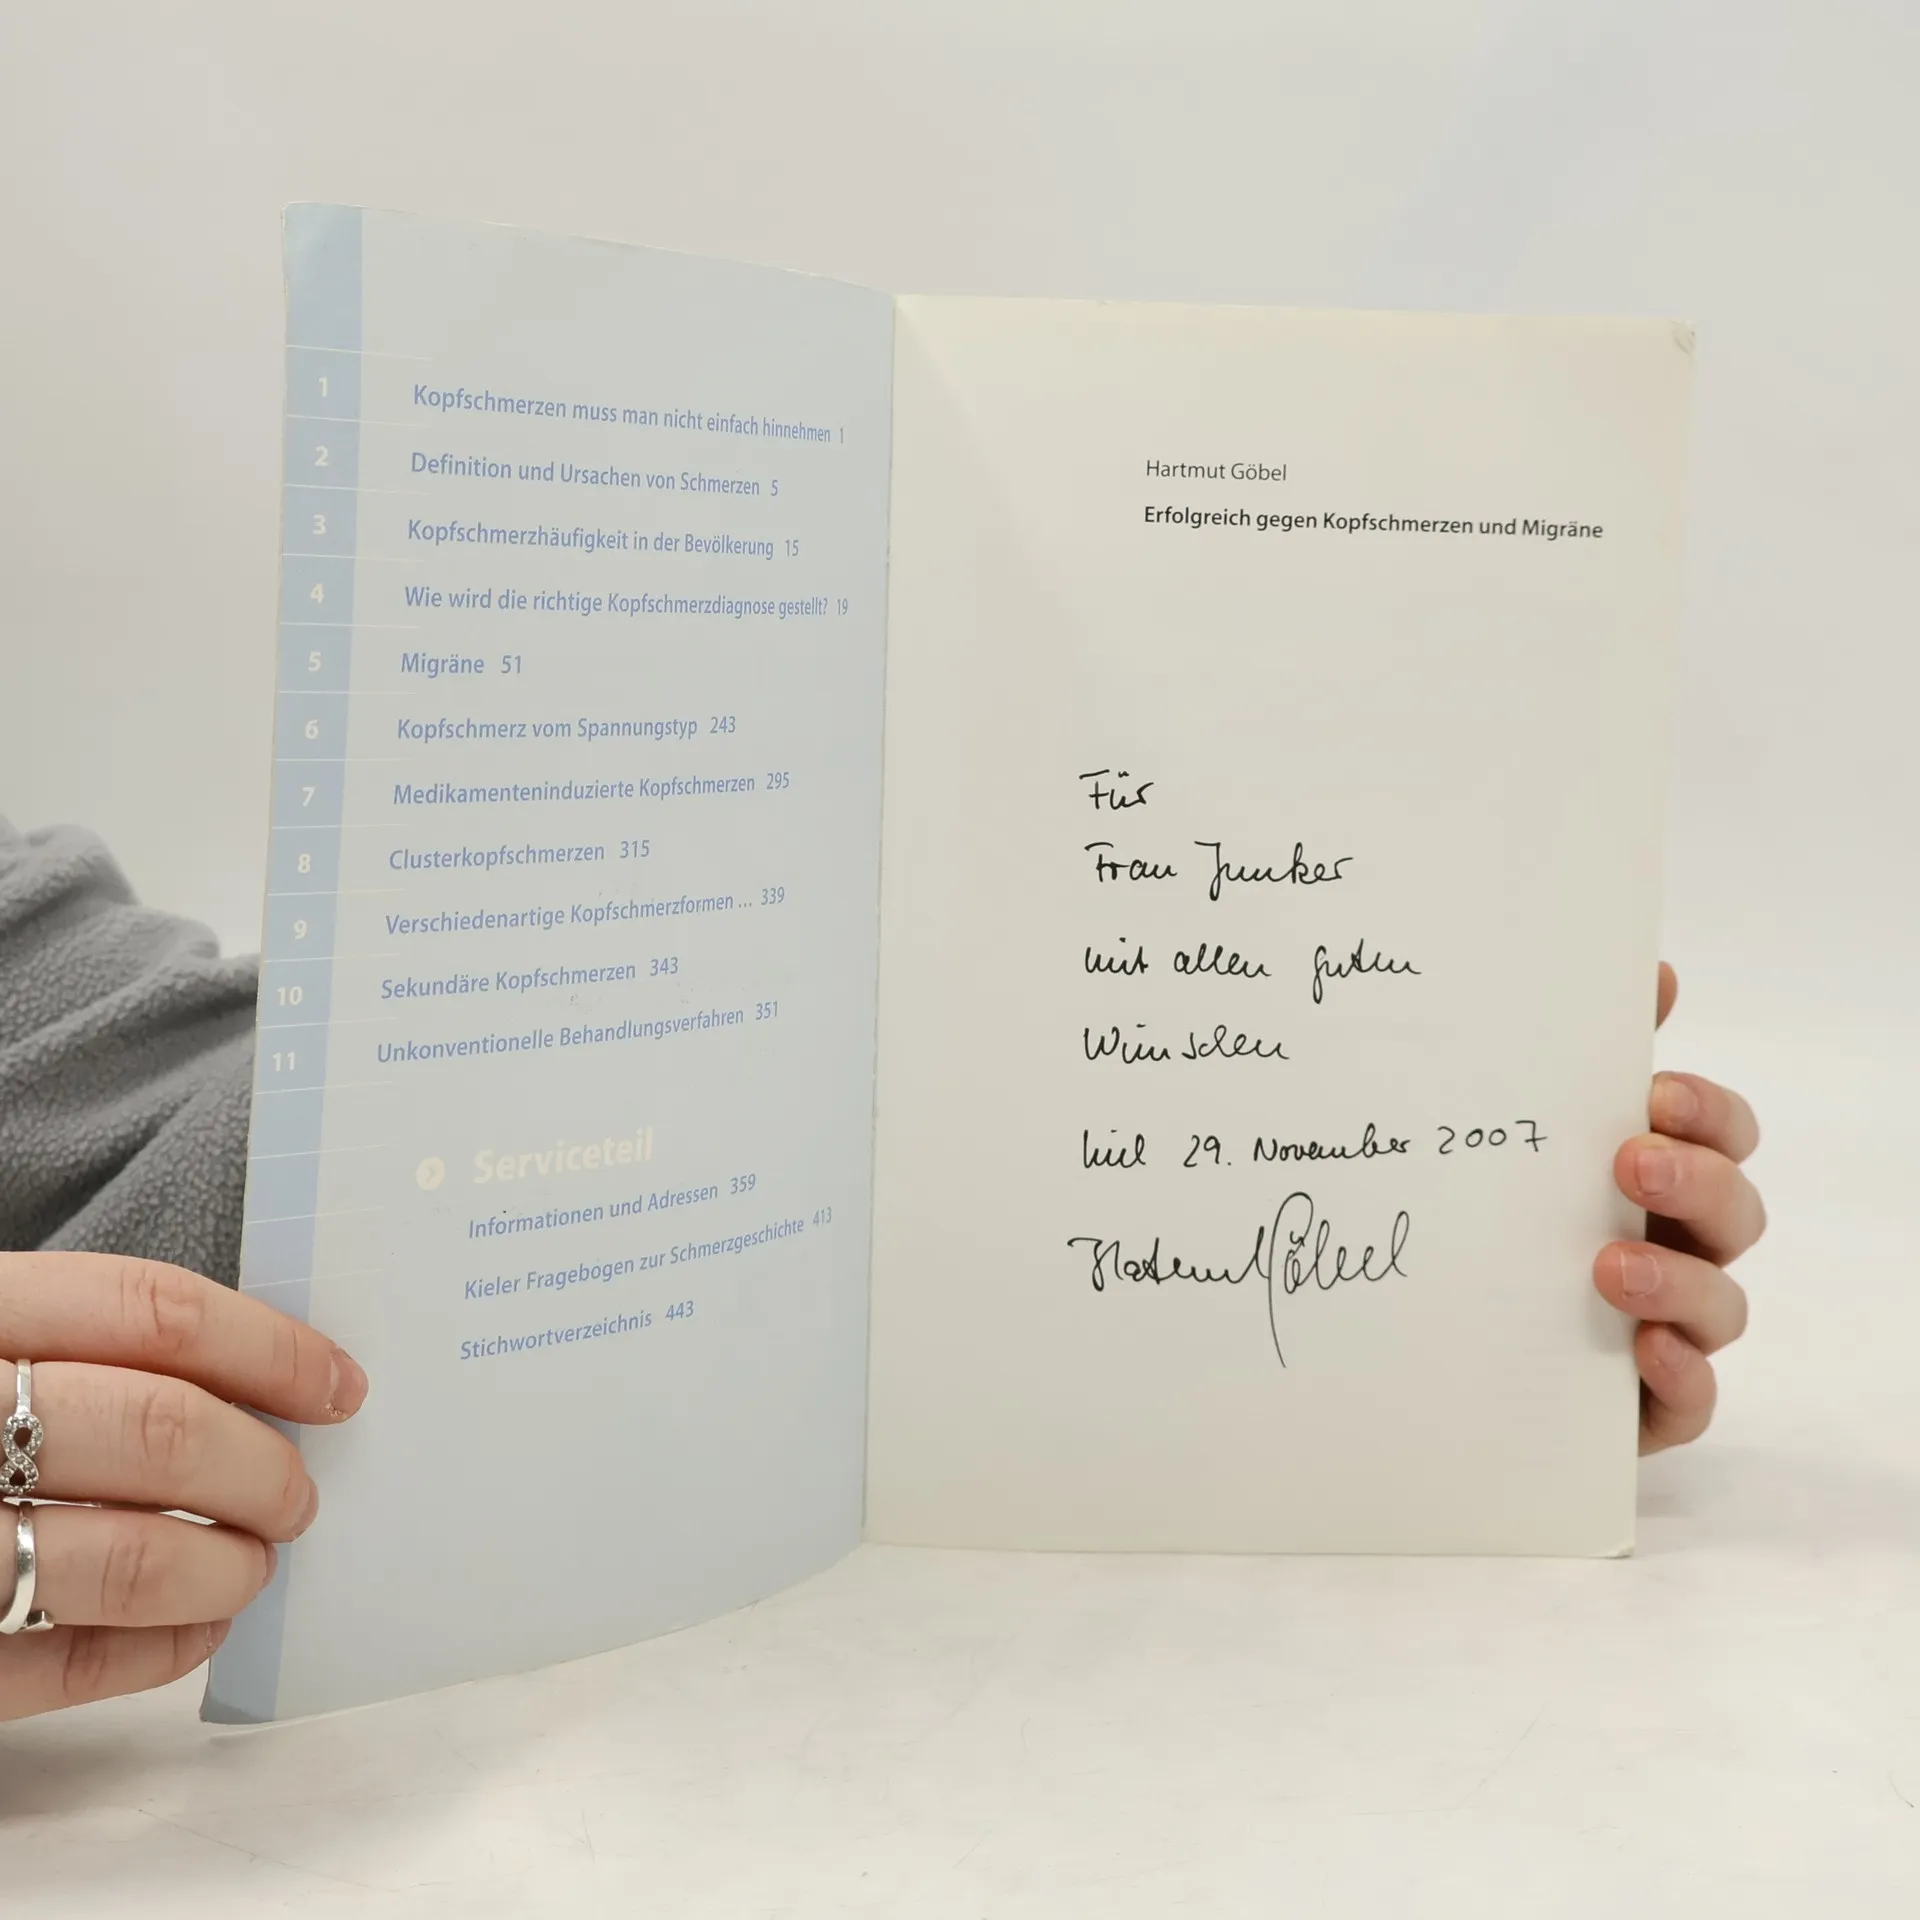 1 Kopfschmerzen muss man nicht einfach hinnehmen 1
2 Definition und Ursachen von Schmerzen 5
3 Kopfschmerzhäufigkeit in der Bevölkerung 15
4 Wie wird die richtige Kopfschmerzdiagnose gestellt? 19
5 Migräne 51
6 Kopfschmerz vom Spannungstyp 243
7 Medikamenteninduzierte Kopfschmerzen 295
8 Clusterkopfschmerzen 315
9 Verschiedenartige Kopfschmerzformen ... 339
10 Sekundäre Kopfschmerzen 343
11 Unkonventionelle Behandlungsverfahren 351
Serviceteil
Informationen und Adressen 359
Kieler Fragebogen zur Schmerzgeschichte 413
Stichwortverzeichnis 443
Hartmut Göbel
Erfolgreich gegen Kopfschmerzen und Migräne
Für
Frau Junker
mit allen guten
Wünschen
Kiel 29. November 2007
Hartmut Göbel